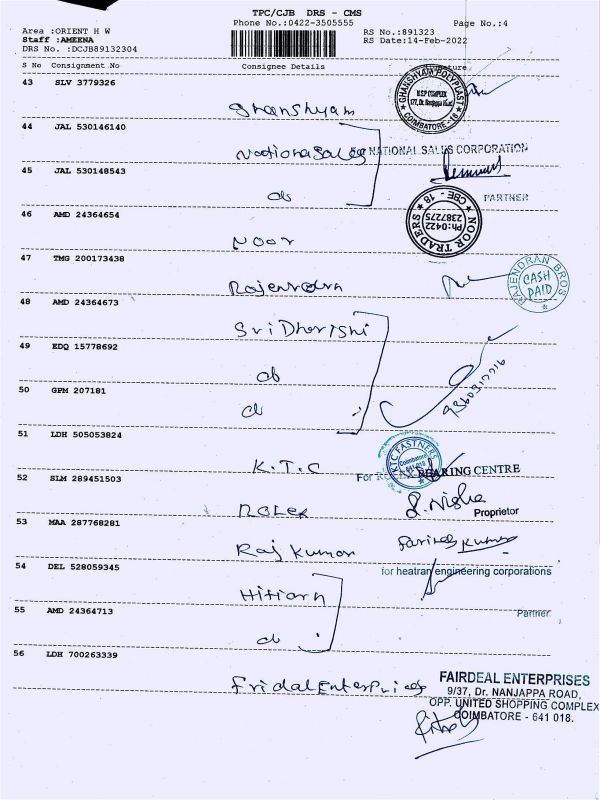 TPC/CJB DRS - CMS
Phone No.:0422-3505555 Page No.:4
Area :ORIENT H W RS No.:891323
Staff :AMEENA RS Date:14-Feb-2022
DRS No. :DCJB89132304
S No Consignment No Consignee Details Signature
43 SLV 3779326
Ghanshyam
GHANSHYAM POLYPLAST
COIMBATORE - 18
44 JAL 530146140
National Sales
NATIONAL SALES CORPORATION
45 JAL 530148543
do
PARTNER
46 AMD 24364654
Noor
NOOR TRADERS
CBE - 18
PH:0422
2387275
47 TMG 200173438
Rajendran
RAJENDRAN BROS
CASH
PAID
48 AMD 24364673
Sri Dharishi
49 EDQ 15778692
do
50 GPM 207181
do
9360312716
51 LDH 505053824
K.T.C
KTC FASTNERS
Coimbatore
641 018
For BEARING CENTRE
52 SLM 289451503
Rolex
S. Nisha
Proprietor
53 MAA 287768281
Raj Kumar
54 DEL 528059345
for heatran engineering corporations
Hitiarn
55 AMD 24364713
Partner
do
56 LDH 700263339
Fridal Enterprices
FAIRDEAL ENTERPRISES
9/37, Dr. NANJAPPA ROAD,
OPP. UNITED SHOPPING COMPLEX
COIMBATORE - 641 018.